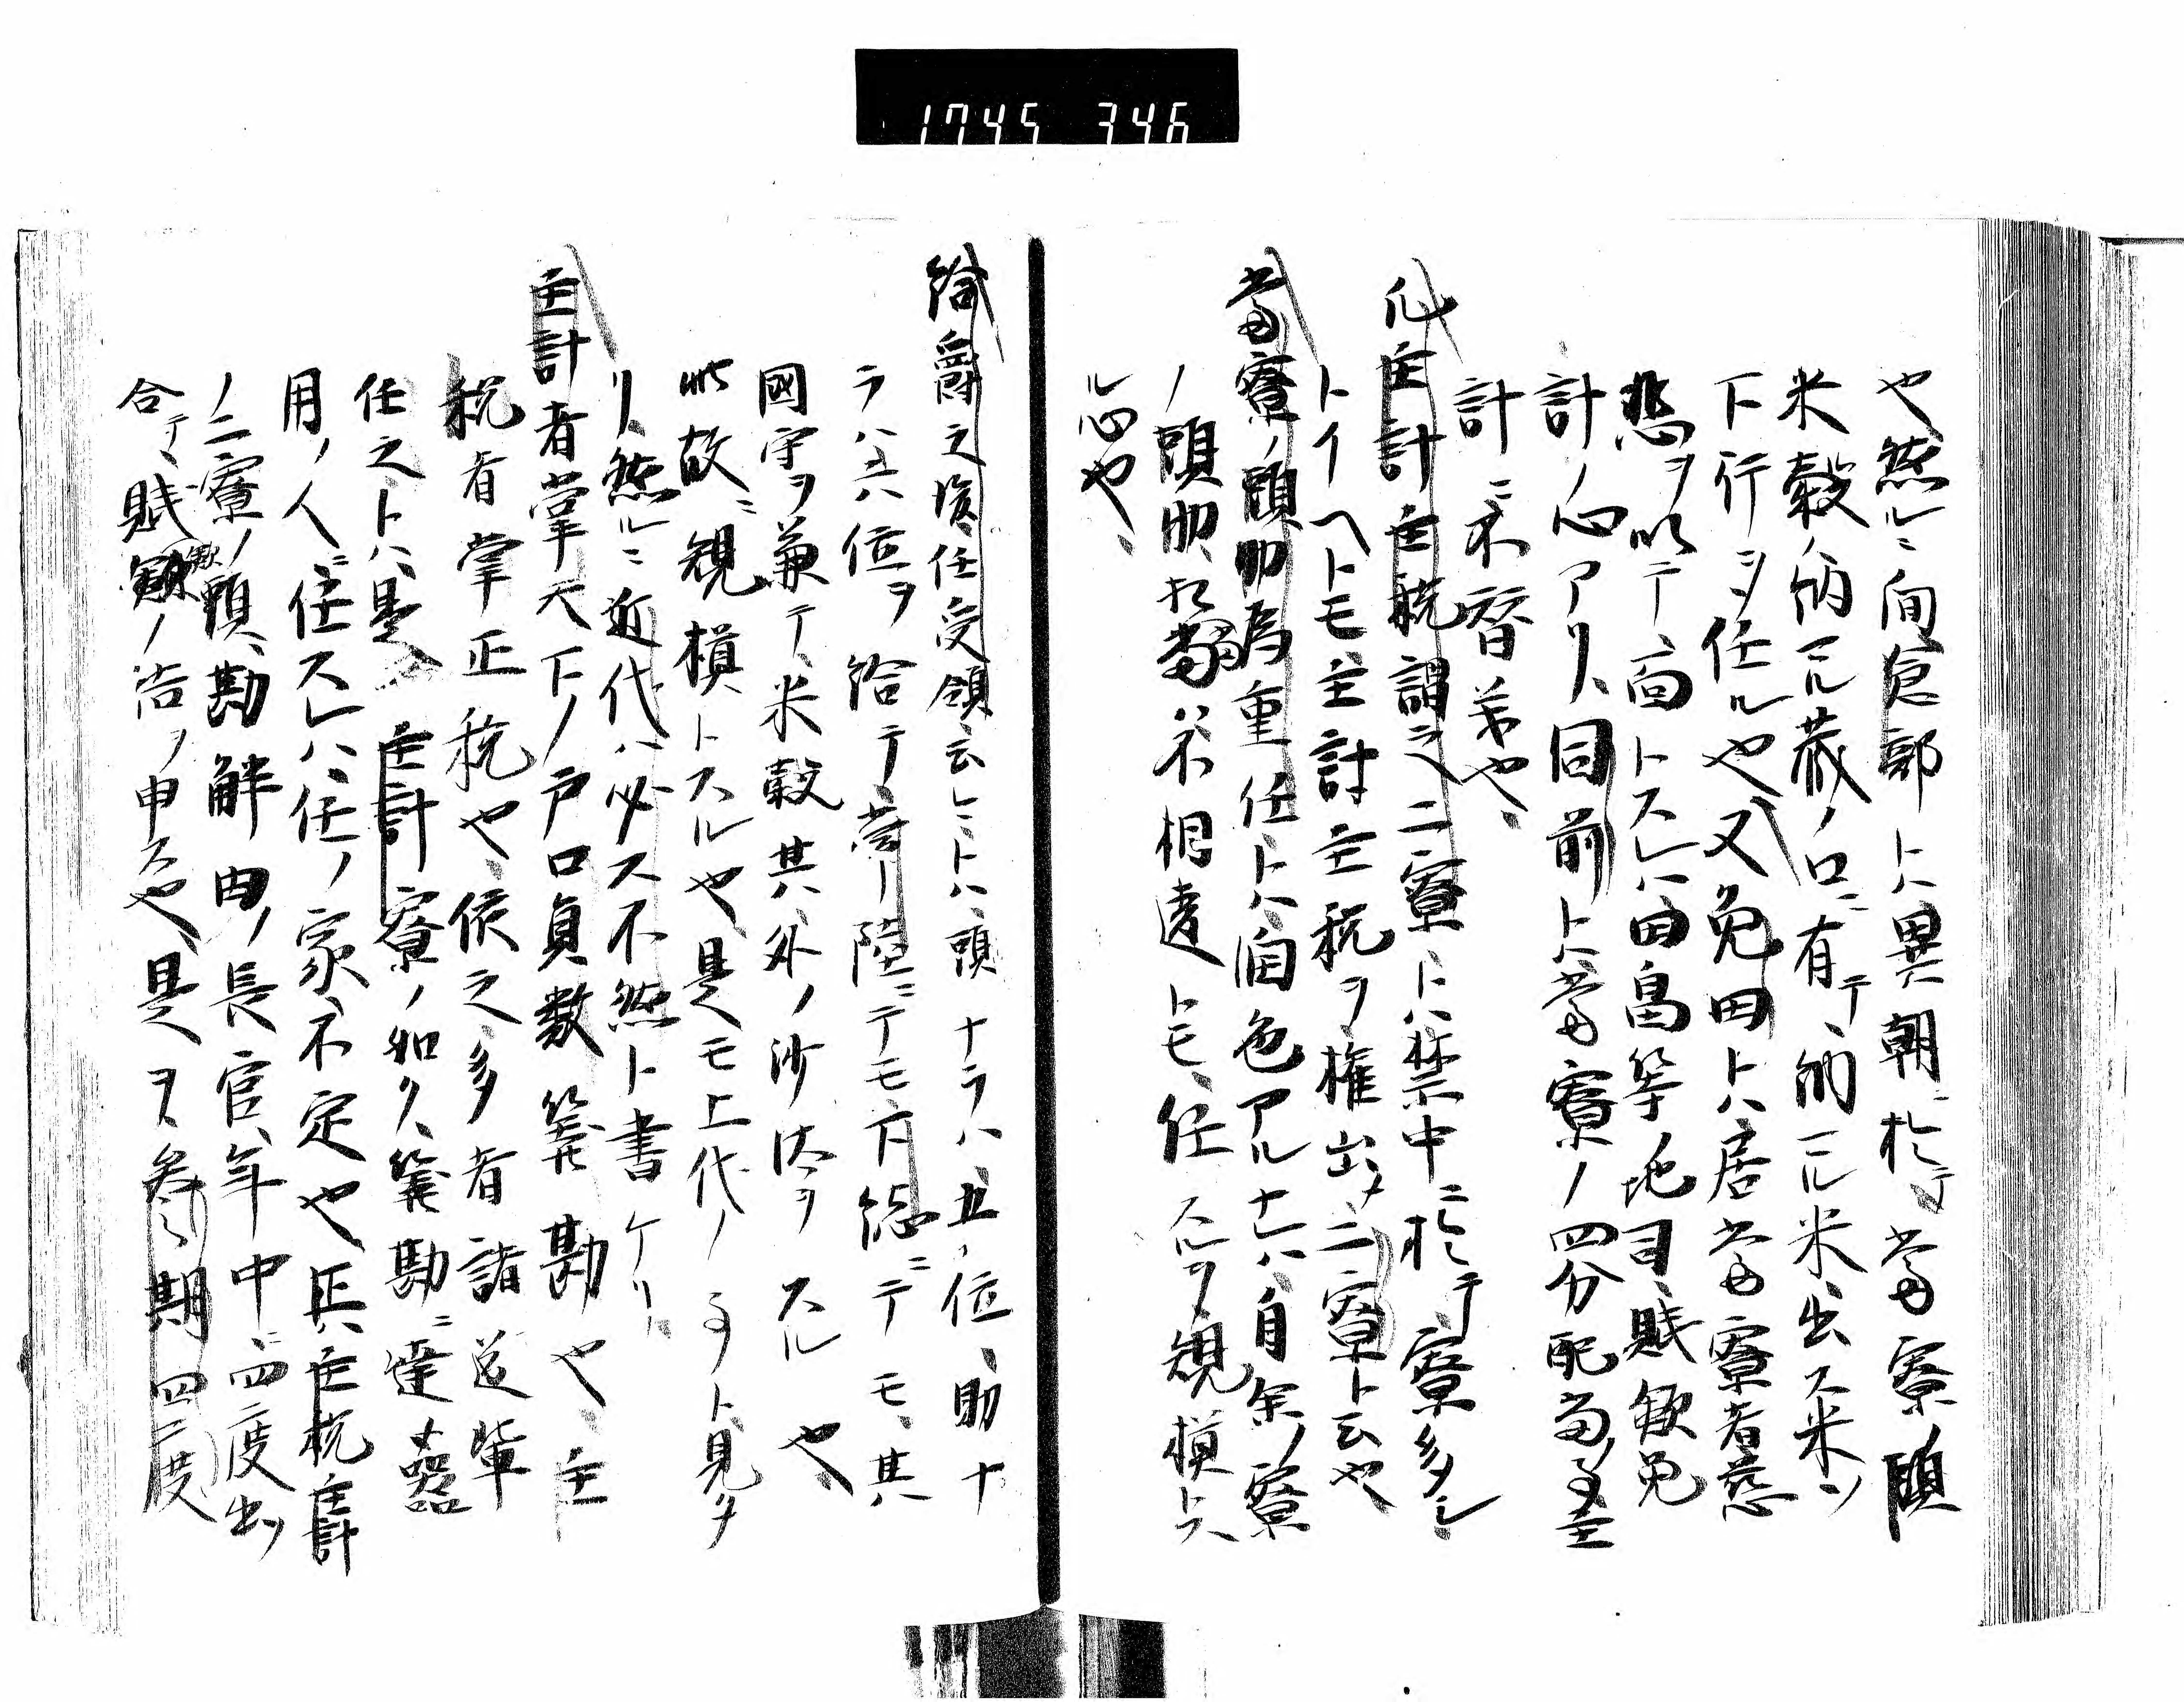 1745 346
也然ルニ間倉部トハ異朝ニ於テ當寮ノ頭
米穀ノ納ル蔵ノ口ニ有テ納ル米出ス米ノ
下行ヲ任ル也又免田トハ居當寮者慈
悲ヲ以テ面トスレハ田畠等地司賦斂免
計ノ心アリ同前トハ當寮ノ四分配當ノ主
計ニ不替義也
凡主計主税謂之二寮トハ禁中ニ於テ寮多シ
トイヘトモ主計主税ヲ権出メ二寮ト云也
當寮ノ頭助為重任トハ面色アル十六ハ自余ノ寮
ノ頭助ハ相當不相違トモ任スルヲ規模トス
ル心也
給爵之後任受領云トハ頭ナラハ五位助ナ
ラハ六位ヲ給テ常陸ニテモ下総ニテモ其
國守ヲ兼テ米穀其外ノ沙汰ヲスル也
此故ニ規模トスル也是モ上代ノ事ト見タ
リ然ルニ近代ハ必ス不然ト書ケリ
主計者掌天下ノ戸口員数筭勘也主
税者掌正税也依之多者諸道輩
任之トハ是 主計寮ノ如ク筭勘ニ達スル器
用ノ人ニ任スレハ任ノ家不定也正ハ主税主計
ノ二寮ノ頭勘解由ノ長官年中ニ四度出
合テ賦斂ノ告ヲ申ス也是ヲ参期四度